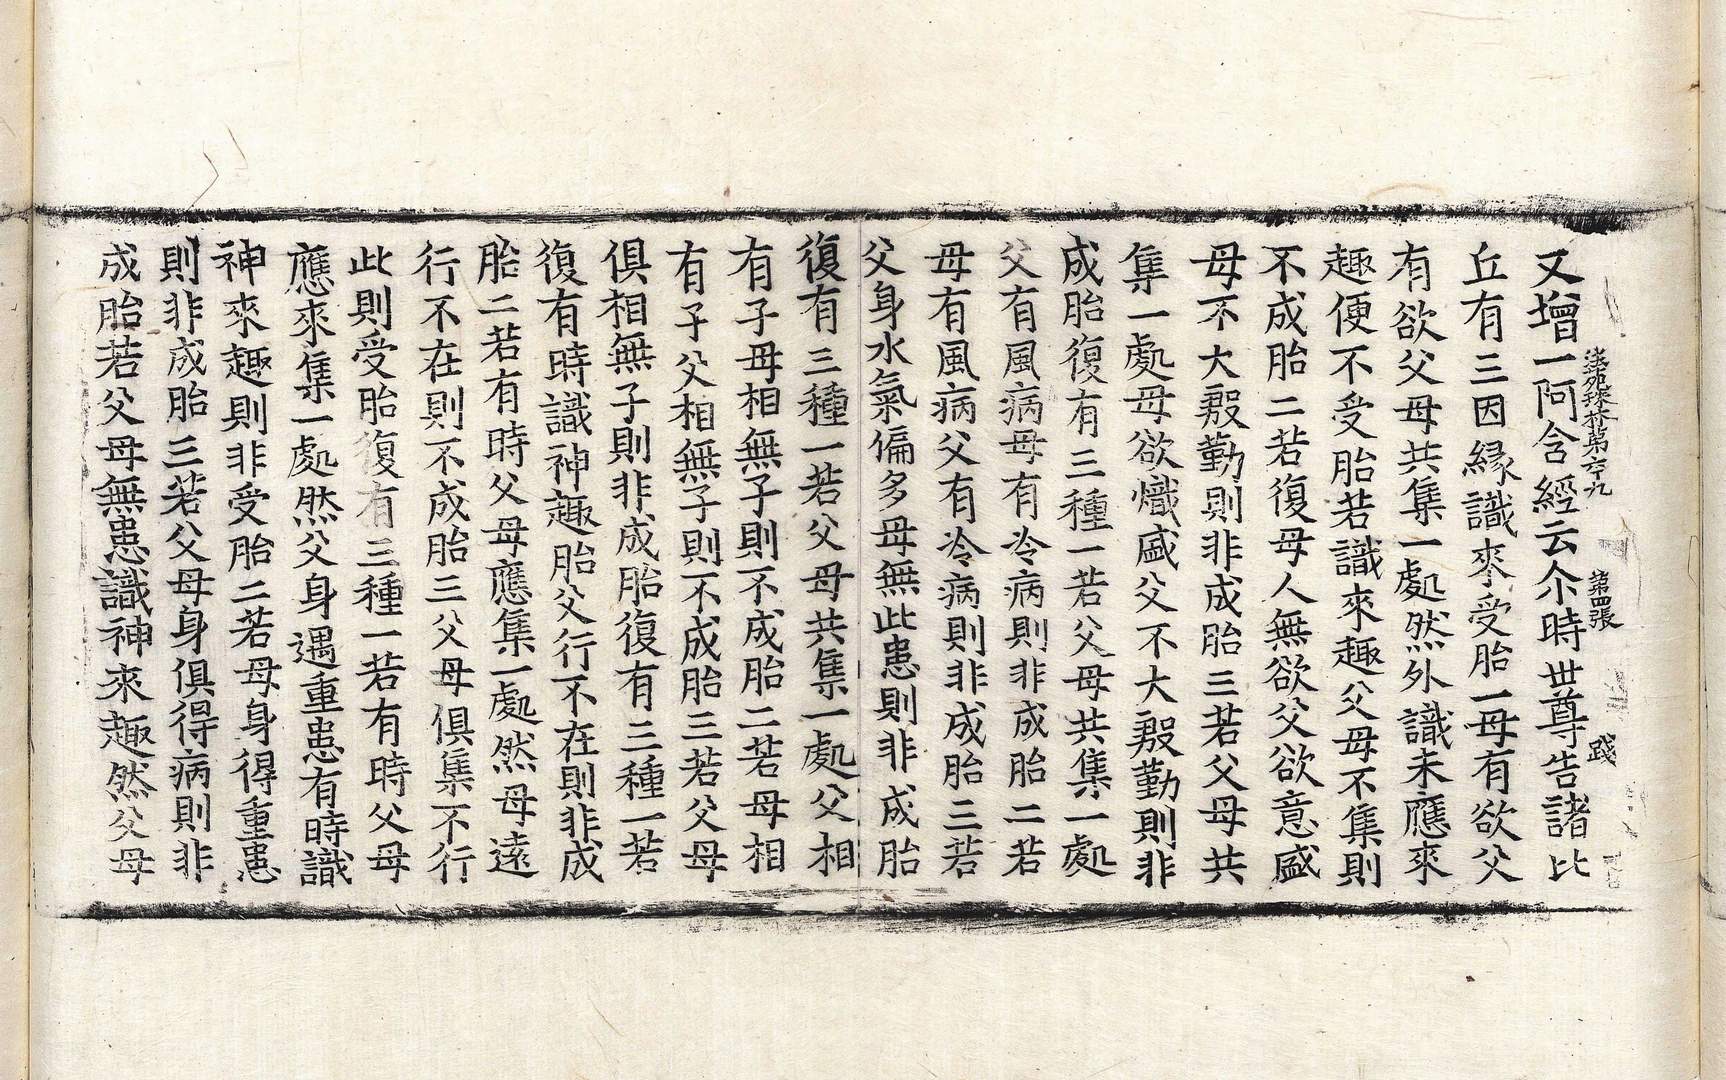 法苑珠林第六十九 第四張 踐
又增一阿含經云尒時世尊告諸比
丘有三因緣識來受胎一母有欲父
有欲父母共集一處然外識未應來
趣便不受胎若識來趣父母不集則
不成胎二若復母人無欲父欲意盛
母不大殷勤則非成胎三若父母共
集一處母欲熾盛父不大殷勤則非
成胎復有三種一若父母共集一處
父有風病母有冷病則非成胎二若
母有風病父有冷病則非成胎三若
父身水氣偏多母無此患則非成胎
復有三種一若父母共集一處父相
有子母相無子則不成胎二若母相
有子父相無子則不成胎三若父母
俱相無子則非成胎復有三種一若
復有時識神趣胎父行不在則非成
胎二若有時父母應集一處然母遠
行不在則不成胎三父母俱集不行
此則受胎復有三種一若有時父母
應來集一處然父身遇重患有時識
神來趣則非受胎二若母身得重患
則非成胎三若父母身俱得病則非
成胎若父母無患識神來趣然父母